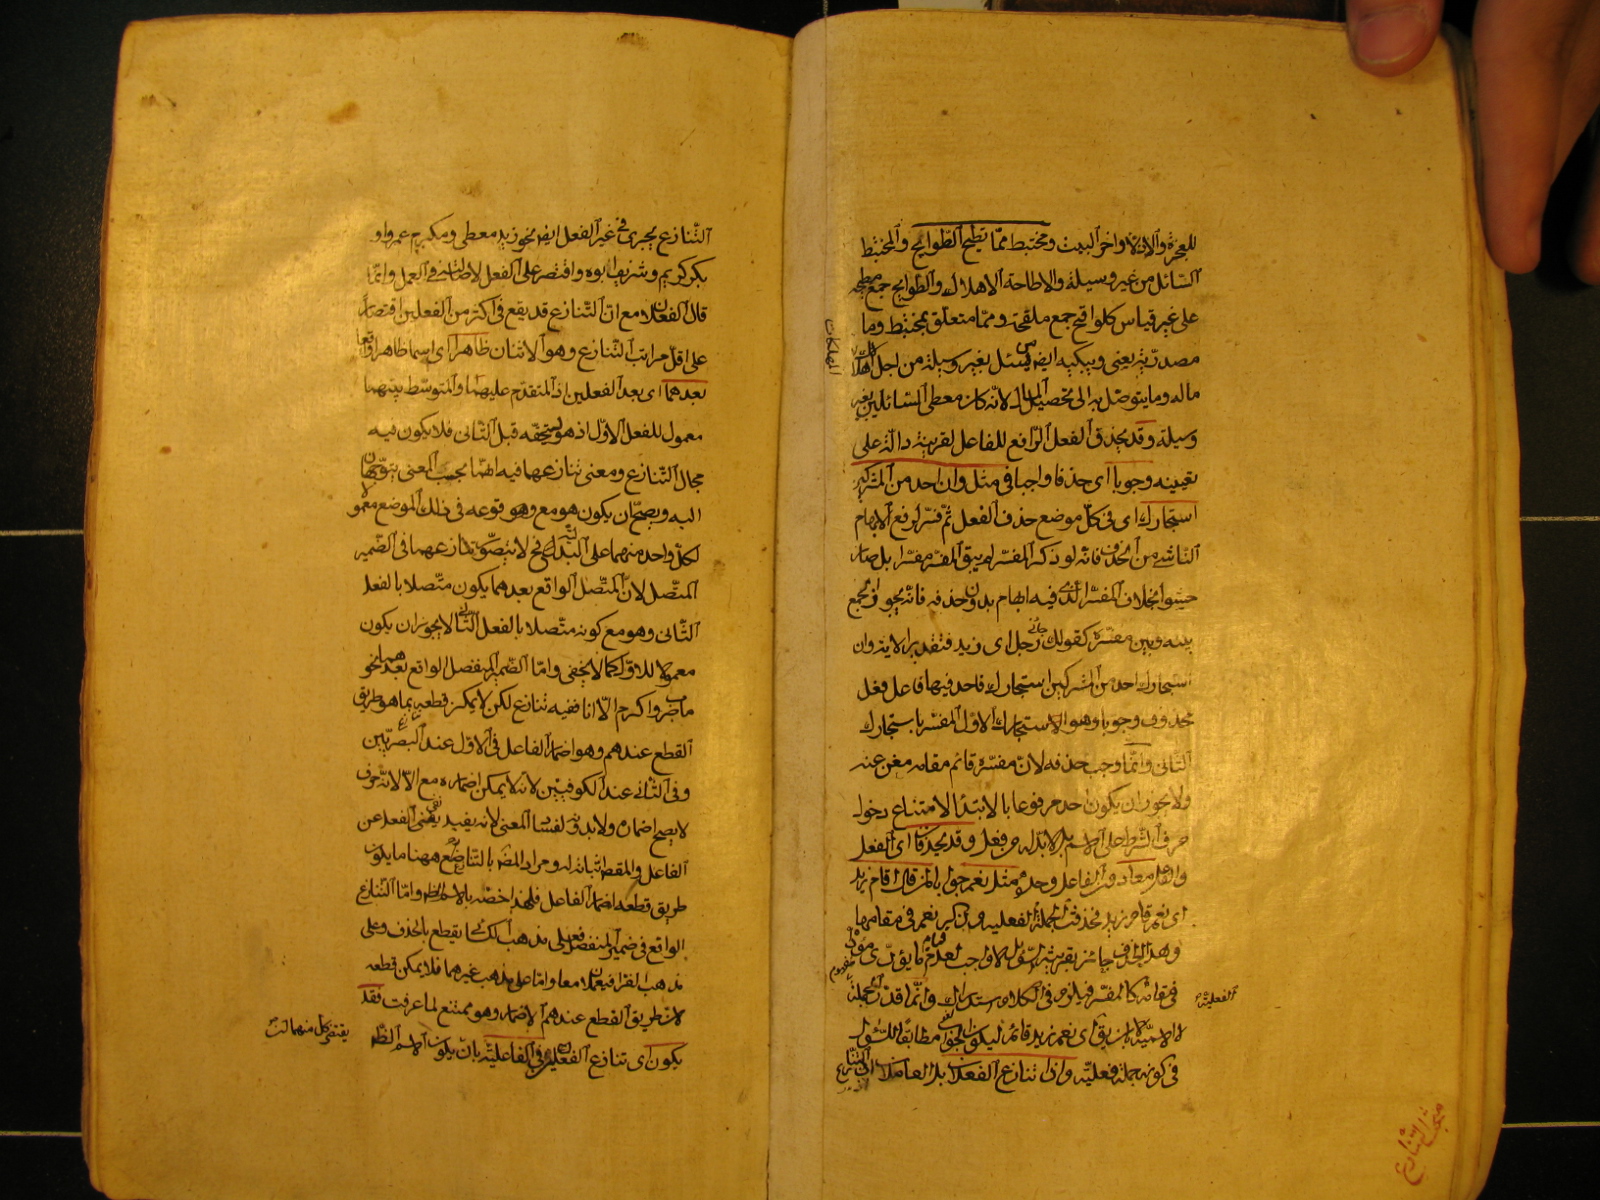 للعجزة والاذلاء واخر البيت ومختبط مما تطيح الطوايح والمختبط
السائل من غير وسيلة والاطاحة الاهلاك والطوايح جمع مطيحة
على غير قياس كلواقح جمع ملقحة ومما متعلق بمختبط وما
مصدرية يعنى ويبكيه ايضا من يسئل بغير وسيلة من اجل اهلاك
ماله وما يتوصل به الى تحصيل المال لانه كان معطى السائلين بغير
وسيلة وقد يحذف الفعل الرافع للفاعل لقرينة دالة على
تعيينه وجوبا اى حذفا واجبا فى مثل وان احد من المشركين
استجارك اى فى كل موضع حذف الفعل ثم فسر لرفع الابهام
الناشى من الحذف فانه لو ذكر المفسر لم يبق المفسر مفسرا بل صار
حشوا بخلاف المفسر الذى فيه ابهام بدون حذفه فانه يجوز الجمع
بينه وبين مفسره كقولك جائنى رجل اى زيد فتقدير الاية وان
استجارك احد من المشركين استجارك فاحد فيها فاعل فعل
محذوف وجوبا وهو استجارك الاول المفسر باستجارك
الثانى وانما وجب حذفه لان مفسره قائم مقامه مغن عنه
ولا يجوز ان يكون احد مرفوعا بالابتداء لامتناع دخول
حرف الشرط على الاسم بل لابد له من فعل وقد يحذفان اى الفعل
والفاعل معا دون الفاعل وحده مثل نعم جوابا لمن قال اقام زيد
اى نعم قام زيد فحذفت الجملة الفعلية وذكر نعم فى مقامها
وهذا الحذف جائز بقرينة السؤال لا واجب لعدم قيام ما يؤدى مؤداه
فى مقامه كالمفسر فيلزم فى الكلام استدراك وانما قدرت الجملة الفعلية
لا الاسمية بان يق اى نعم زيد قائم ليكون الجواب مطابقا للسؤال
فى كونه جملة فعلية واذا تنازع الفعلان بل العاملان اذ التنازع
المهلكات
مبحث التنازع
التنازع يجرى فى غير الفعل ايضا نحو زيد معطى ومكرم عمروا و
بكر كريم وشريف ابوه واقتصر على الفعل لاصالته فى العمل وانما
قال الفعلان مع ان التنازع قد يقع فى اكثر من الفعلين اقتصارا
على اقل مراتب التنازع وهو الاثنان ظاهرا اى اسما ظاهرا واقعا
بعدهما اى بعد الفعلين اذ المتقدم عليهما والمتوسط بينهما
معمول للفعل الاول اذ هو يستحقه قبل الثانى فلا يكون فيه
مجال التنازع ومعنى تنازعهما فيه انهما بحسب المعنى يتوجهان
اليه ويصح ان يكون هو مع وقوعه فى ذلك الموضع معمولا
لكل واحد منهما على البدل فح لا يتصور تنازعهما فى الضمير
المتصل لان المتصل الواقع بعدهما يكون متصلا بالفعل
الثانى وهو مع كونه متصلا بالفعل الثانى لا يجوز ان يكون
معمولا للاول كما لا يخفى واما الضمير المنفصل الواقع بعدهما نحو
ما ضرب واكرم الا انا ففيه تنازع لكن لا يمكن قطعه بما هو طريق
القطع عندهم وهو اضمار الفاعل فى الاول عند البصريين
وفى الثانى عند الكوفيين لانه لا يمكن اضماره مع الا لانه حرف
لا يصح اضماره ولا بدونه لفساد المعنى لانه يفيد نفى الفعل عن
الفاعل والمقصود اثباته له ومراد المص بالتنازع ههنا ما يكون
طريق قطعه اضمار الفاعل فلهذا خصه بالاسم الظاهر واما التنازع
الواقع فى ضمير المنفصل فعلى مذهب الكسائى يقطع بالحذف وعلى
مذهب الفراء فيعملان معا واما على مذهب غيرهما فلا يمكن قطعه
لان طريق القطع عندهم الاضمار وهو ممتنع لما عرفت فقد
يكون اى تنازع الفعلين فى الفاعلية بان يكون الاسم الظاهر
يقتضى كل منهما